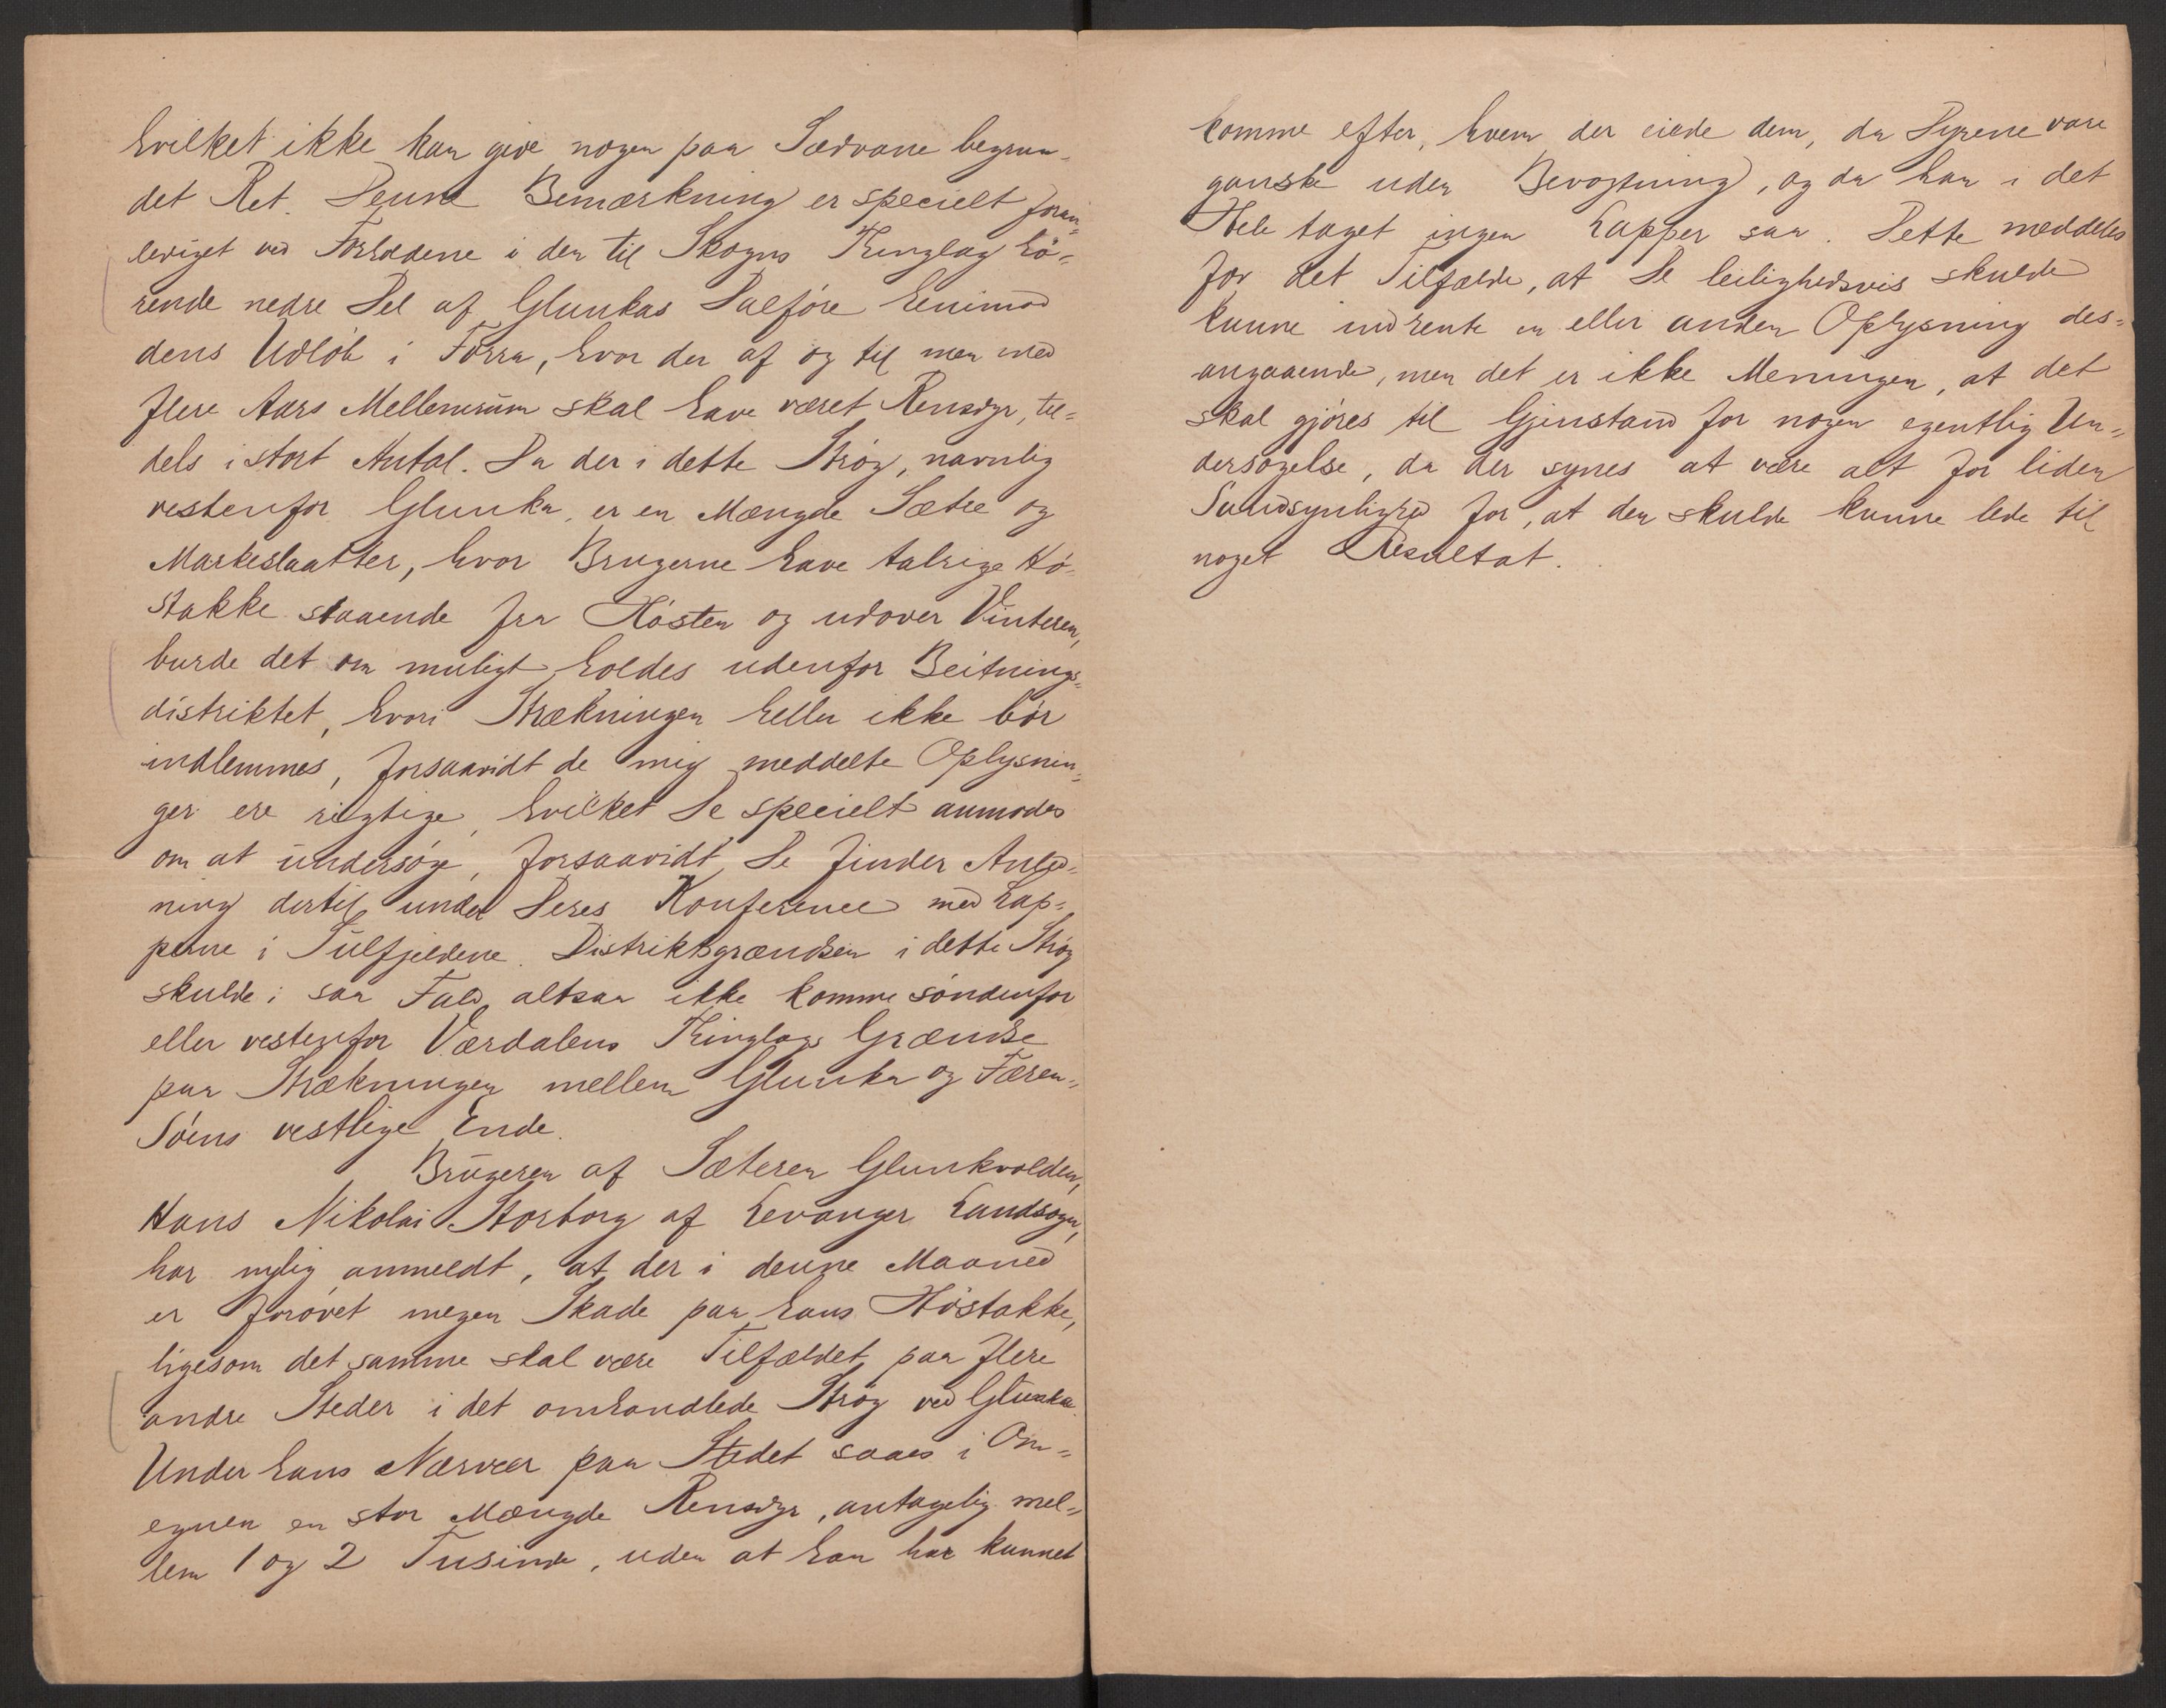 hvilket ikke kan give nogen paa Sædvane begrun-
det Ret. Denne Bemærkning er specielt foran-
lediget ved Forholdene i den til Skogns Thinglag hö-
rende nedre Del af Glunkas Dalföre henimod
dens Udlöb i Forra, hvor der af og til men med
flere Aars Mellemrum skal have været Rensdyr, til-
dels i stort Antal. Da der i dette Strög, navnlig
vestenfor Glunka, er en Mængde Sætre og
Markeslaatter, hvor Brugerne have talrige Hö-
stakke staaende fra Hösten og udover Vinteren,
burde det om muligt holdes udenfor Beitnings-
distriktet, hvori Strækningen heller ikke bör
indlemmes, forsaavidt de mig meddelte Oplysnin-
ger ere rigtige, hvilket De specielt anmodes
om at undersöge, forsaavidt De finder Anled-
ning dertil under Deres Konference med Lap-
perne i Tulfjeldene. Distriktsgrændsen i dette Strög
skulde i saa Fald altsaa ikke komme söndenfor
eller vestenfor Værdalens Thinglags Grændse
paa Strækningen mellem Glunka og Færen-
Söens vestlige Ende.
Brugeren af Sæteren Glunkvolden,
Hans Nikolai Storborg af Levanger Landsogn,
har nylig anmeldt, at der i denne Maaned
er forövet megen Skade paa hans Höstakke,
ligesom det samme skal være Tilfældet paa flere
andre Steder i det omhandlede Strög ved Glunka.
Under hans Nærvær paa Stedet saaes i Om-
egnen en stor Mængde Rensdyr, antagelig mel-
lem 1 og 2 Tusinde, uden at han har kunnet
komme efter, hvem der eiede dem, da Dyrene vare
ganske uden Bevogtning, og da han i det
Hele taget ingen Lapper saa. Dette meddeles
for det Tilfælde, at De leilighedsvis skulde
kunne indhente en eller anden Oplysning des-
angaaende, men det er ikke Meningen, at det
skal gjöres til Gjenstand for nogen egentlig Un-
dersögelse, da der synes at være alt for liden
Sandsynlighed for, at den skulde kunne lede til
noget Resultat.